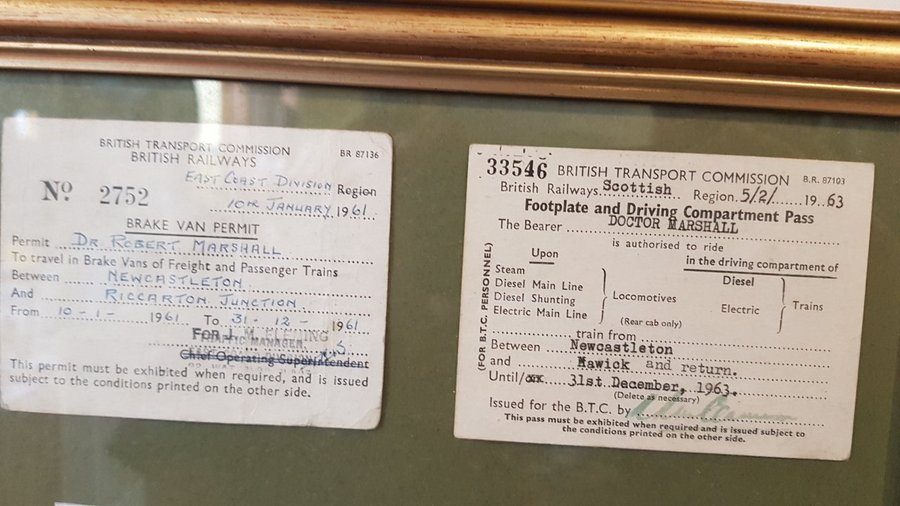 BRITISH TRANSPORT COMMISSION
BRITISH RAILWAYS
BR 87136
EAST COAST DIVISION Region
No 2752
10TH JANUARY 1961
BRAKE VAN PERMIT
Permit DR. ROBERT MARSHALL
To travel in Brake Vans of Freight and Passenger Trains
Between NEWCASTLETON
And RICCARTON JUNCTION
From 10-1- 1961 To 31-12- 1961
For J.
TRAFFIC MANAGER
Chief Operating Superintendent
This permit must be exhibited when required, and is issued
subject to the conditions printed on the other side.
33546 BRITISH TRANSPORT COMMISSION B.R. 87103
British Railways Scottish Region 5/2/ 19 63
Footplate and Driving Compartment Pass
The Bearer DOCTOR MARSHALL
is authorised to ride
Upon in the driving compartment of
(FOR B.T.C. PERSONNEL)
Steam
Diesel Main Line
Diesel Shunting
Electric Main Line
Locomotives
(Rear cab only)
Diesel
Electric
Trains
train from
Between Newcastleton
and Hawick and return.
Until/xx 31st December, 1963.
(Delete as necessary)
Issued for the B.T.C. by
This pass must be exhibited when required and is issued subject to
the conditions printed on the other side.